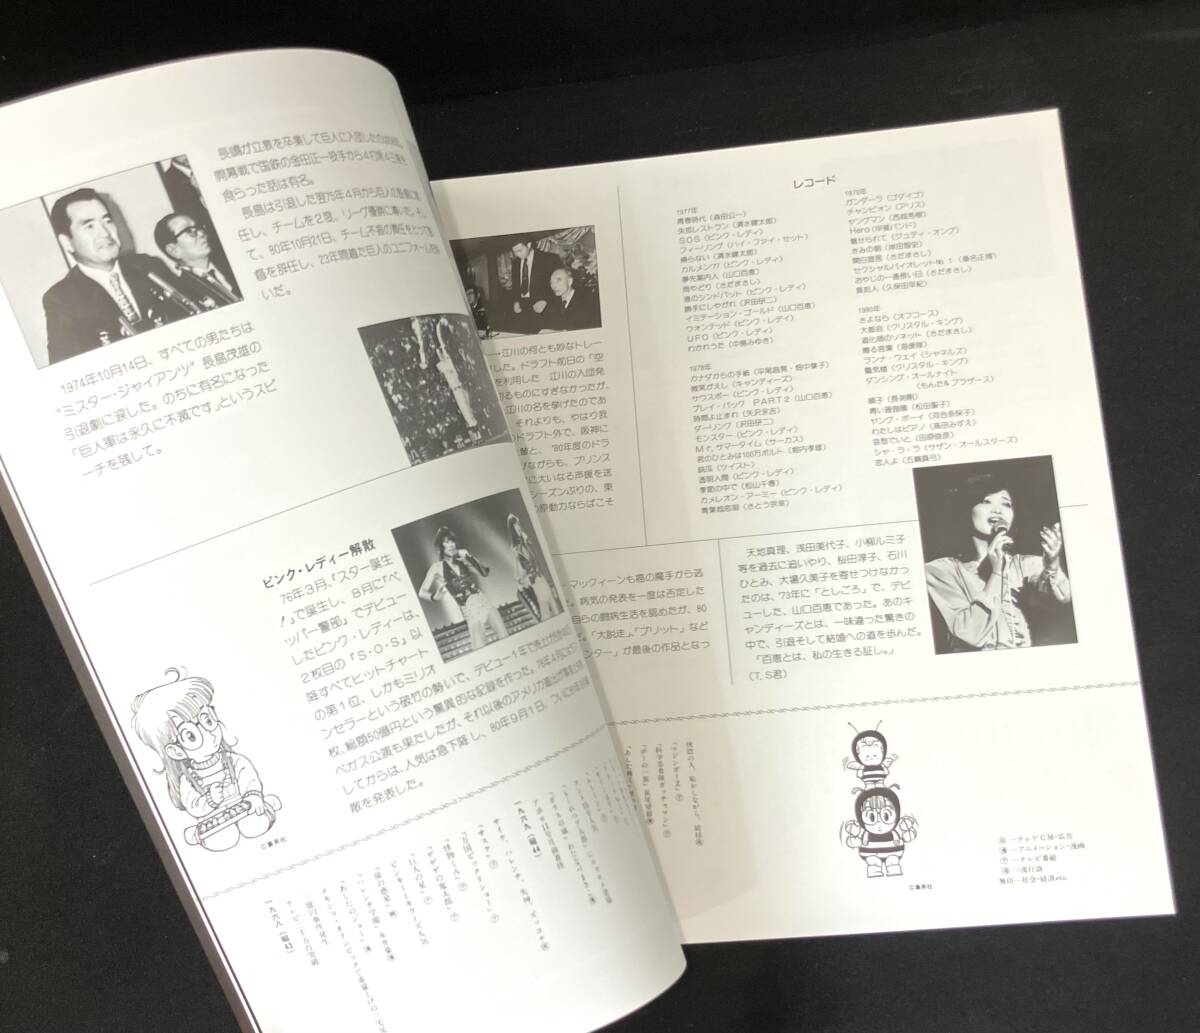 長嶋が立教を卒業して巨人に入団したのは
開幕戦で国鉄の金田正一投手から4打席4三振を
食らった話は有名。
長島は引退した翌75年4月から巨人の監督に就
任し、チームを2度、リーグ優勝に導いた。そし
て、80年10月21日、チーム不振の責任をとって監
督を辞任し、23年間着た巨人のユニフォームを脱
いだ。
1974年10月14日、すべての男たちは
“ミスター・ジャイアンツ”長島茂雄の
引退劇に涙した。のちに有名になった
「巨人軍は永久に不滅です」というスピ
ーチを残して。
ピンク・レディー解散
76年3月、「スター誕生
!」で誕生し、8月に「ペ
ッパー警部」でデビュー
したピンク・レディーは、
2枚目の「S・O・S」以
降すべてヒットチャート
の第1位、しかもミリオ
ンセラーという破竹の勢いで、デビュー1年で売上げ
枚、総額50億円という驚異的な記録を作った。76年4月には
ベガス公演も果たしたが、それ以後のアメリカ進出が
してからは、人気は急下降し、80年9月1日、ついに
散を発表した。
©集英社
一九六九（昭44）
アポロ11号月面着陸
サイケ、ハレンチ、失神、ズッコケ
「サスケ」
「万国ビックリショー」
「怪物くん」
「ゲゲゲの鬼太郎」
「巨人の星」
ピンキーとキラーズ人気
「猿の惑星」
「ハレンチ学園」永井豪
「あしたのジョー」
メキシコ・オリンピックで
一九六八（昭43）
三億円事件発生
テレビ二千万台突破
江川の何とも妙なトレー
した。ドラフト前日の「空
を利用した　江川の入団発
るものにすぎなかったが、
江川の名を挙げたのであ
それよりも、やはり我
のドラフト外で、阪神に
輩と、'80年度のドラ
ながらも、プリンス
に大いなる声援を送
シーズンぶりの、東
の原動力ならばこそ
レコード
1977年
青春時代（森田公一）
失恋レストラン（清水健太郎）
SOS（ピンク・レディ）
フィーリング（ハイ・ファイ・セット）
帰らない（清水健太郎）
カルメン77（ピンク・レディ）
夢先案内人（山口百恵）
雨やどり（さだまさし）
渚のシンドバット（ピンク・レディ）
勝手にしやがれ（沢田研二）
イミテーション・ゴールド（山口百恵）
ウォンテッド（ピンク・レディ）
UFO（ピンク・レディ）
わかれうた（中島みゆき）
1978年
カナダからの手紙（平尾昌晃・畑中葉子）
微笑がえし（キャンディーズ）
サウスポー（ピンク・レディ）
プレイ・バック　PART2（山口百恵）
時間よ止まれ（矢沢永吉）
ダーリング（沢田研二）
モンスター（ピンク・レディ）
Mr.サマータイム（サーカス）
君のひとみは100万ボルト（堀内孝雄）
銃爪（ツイスト）
透明人間（ピンク・レディ）
季節の中で（松山千春）
カメレオン・アーミー（ピンク・レディ）
青葉城恋唄（さとう宗幸）
1979年
ガンダーラ（ゴダイゴ）
チャンピオン（アリス）
ヤングマン（西城秀樹）
Hero（甲斐バンド）
魅せられて（ジュディ・オング）
きみの朝（岸田智史）
関白宣言（さだまさし）
セクシャルバイオレットNo1（桑名正博）
おやじの一番長い日（さだまさし）
異邦人（久保田早紀）
1980年
さよなら（オフコース）
大都会（クリスタル・キング）
道化師のソネット（さだまさし）
贈る言葉（海援隊）
ランナ・ウェイ（シャネルズ）
蜃気楼（クリスタル・キング）
ダンシング・オールナイト
（もんた&ブラザース）
順子（長渕剛）
青い珊瑚礁（松田聖子）
ヤング・ボーイ（河合奈保子）
わたしはピアノ（高田みずえ）
哀愁でいと（田原俊彦）
シャ・ラ・ラ（サザン・オールスターズ）
恋人よ（五輪真弓）
マックィーンも癌の魔手から逃
病気の発表を一度は否定した
自らの闘病生活を認めたが、80
「大脱走」、「ブリット」など
ンター」が最後の作品となっ
天地真理、浅田美代子、小柳ルミ子
等を過去に追いやり、桜田淳子、石川
ひとみ、大場久美子を寄せつけなかっ
たのは、'73年に「としごろ」で、デビ
ューした、山口百恵であった。あのキ
ャンディーズとは、一味違った驚きの
中で、引退そして結婚への道を歩んだ。
「百恵とは、私の生きる証し。」
（T.S君）
恍惚の人、恥かしながら、総括
「マジンガーZ」
「科学忍者隊ガッチャマン」
「ポーの一族」萩尾望都
©集英社
―テレビCM・広告
―アニメーション・漫画
―テレビ番組
―流行語
無印―社会・経済etc.